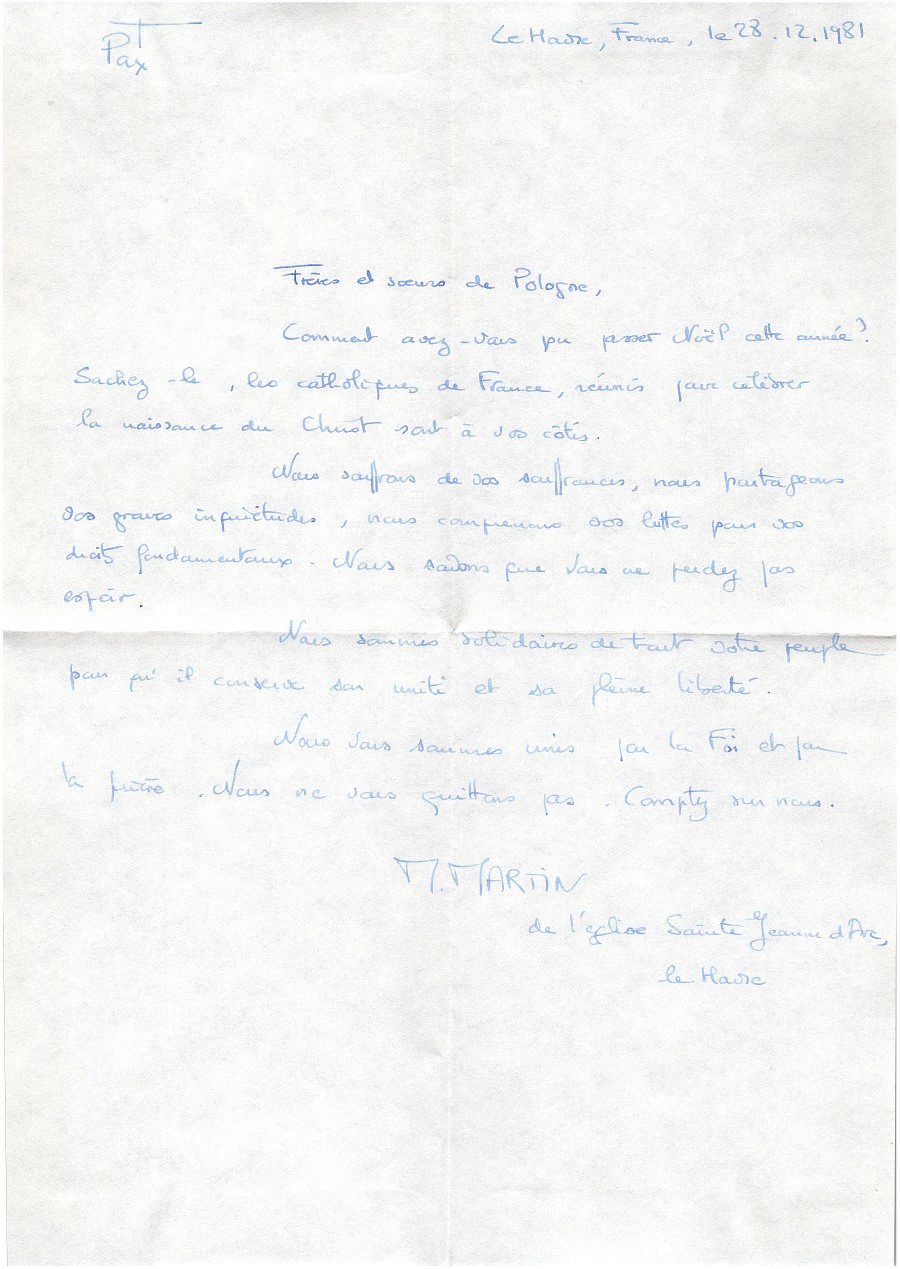 Pax
Le Havre, France, le 28.12.1981
Frères et sœurs de Pologne,
Comment avez-vous pu passer Noël cette année?
Sachez-le, les catholiques de France, réunis pour célébrer
la naissance du Christ sont à vos côtés.
Nous souffrons de vos souffrances, nous partageons
vos graves inquiétudes, nous comprenons vos luttes pour vos
droits fondamentaux. Nous savons que vous ne perdez pas
espoir.
Nous sommes solidaires de tout votre peuple
pour qu'il conserve son unité et sa pleine liberté.
Nous vous sommes unis par la Foi et par
la prière. Nous ne vous quittons pas. Comptez sur nous.
M. MARTIN
de l'église Sainte Jeanne d'Arc,
le Havre